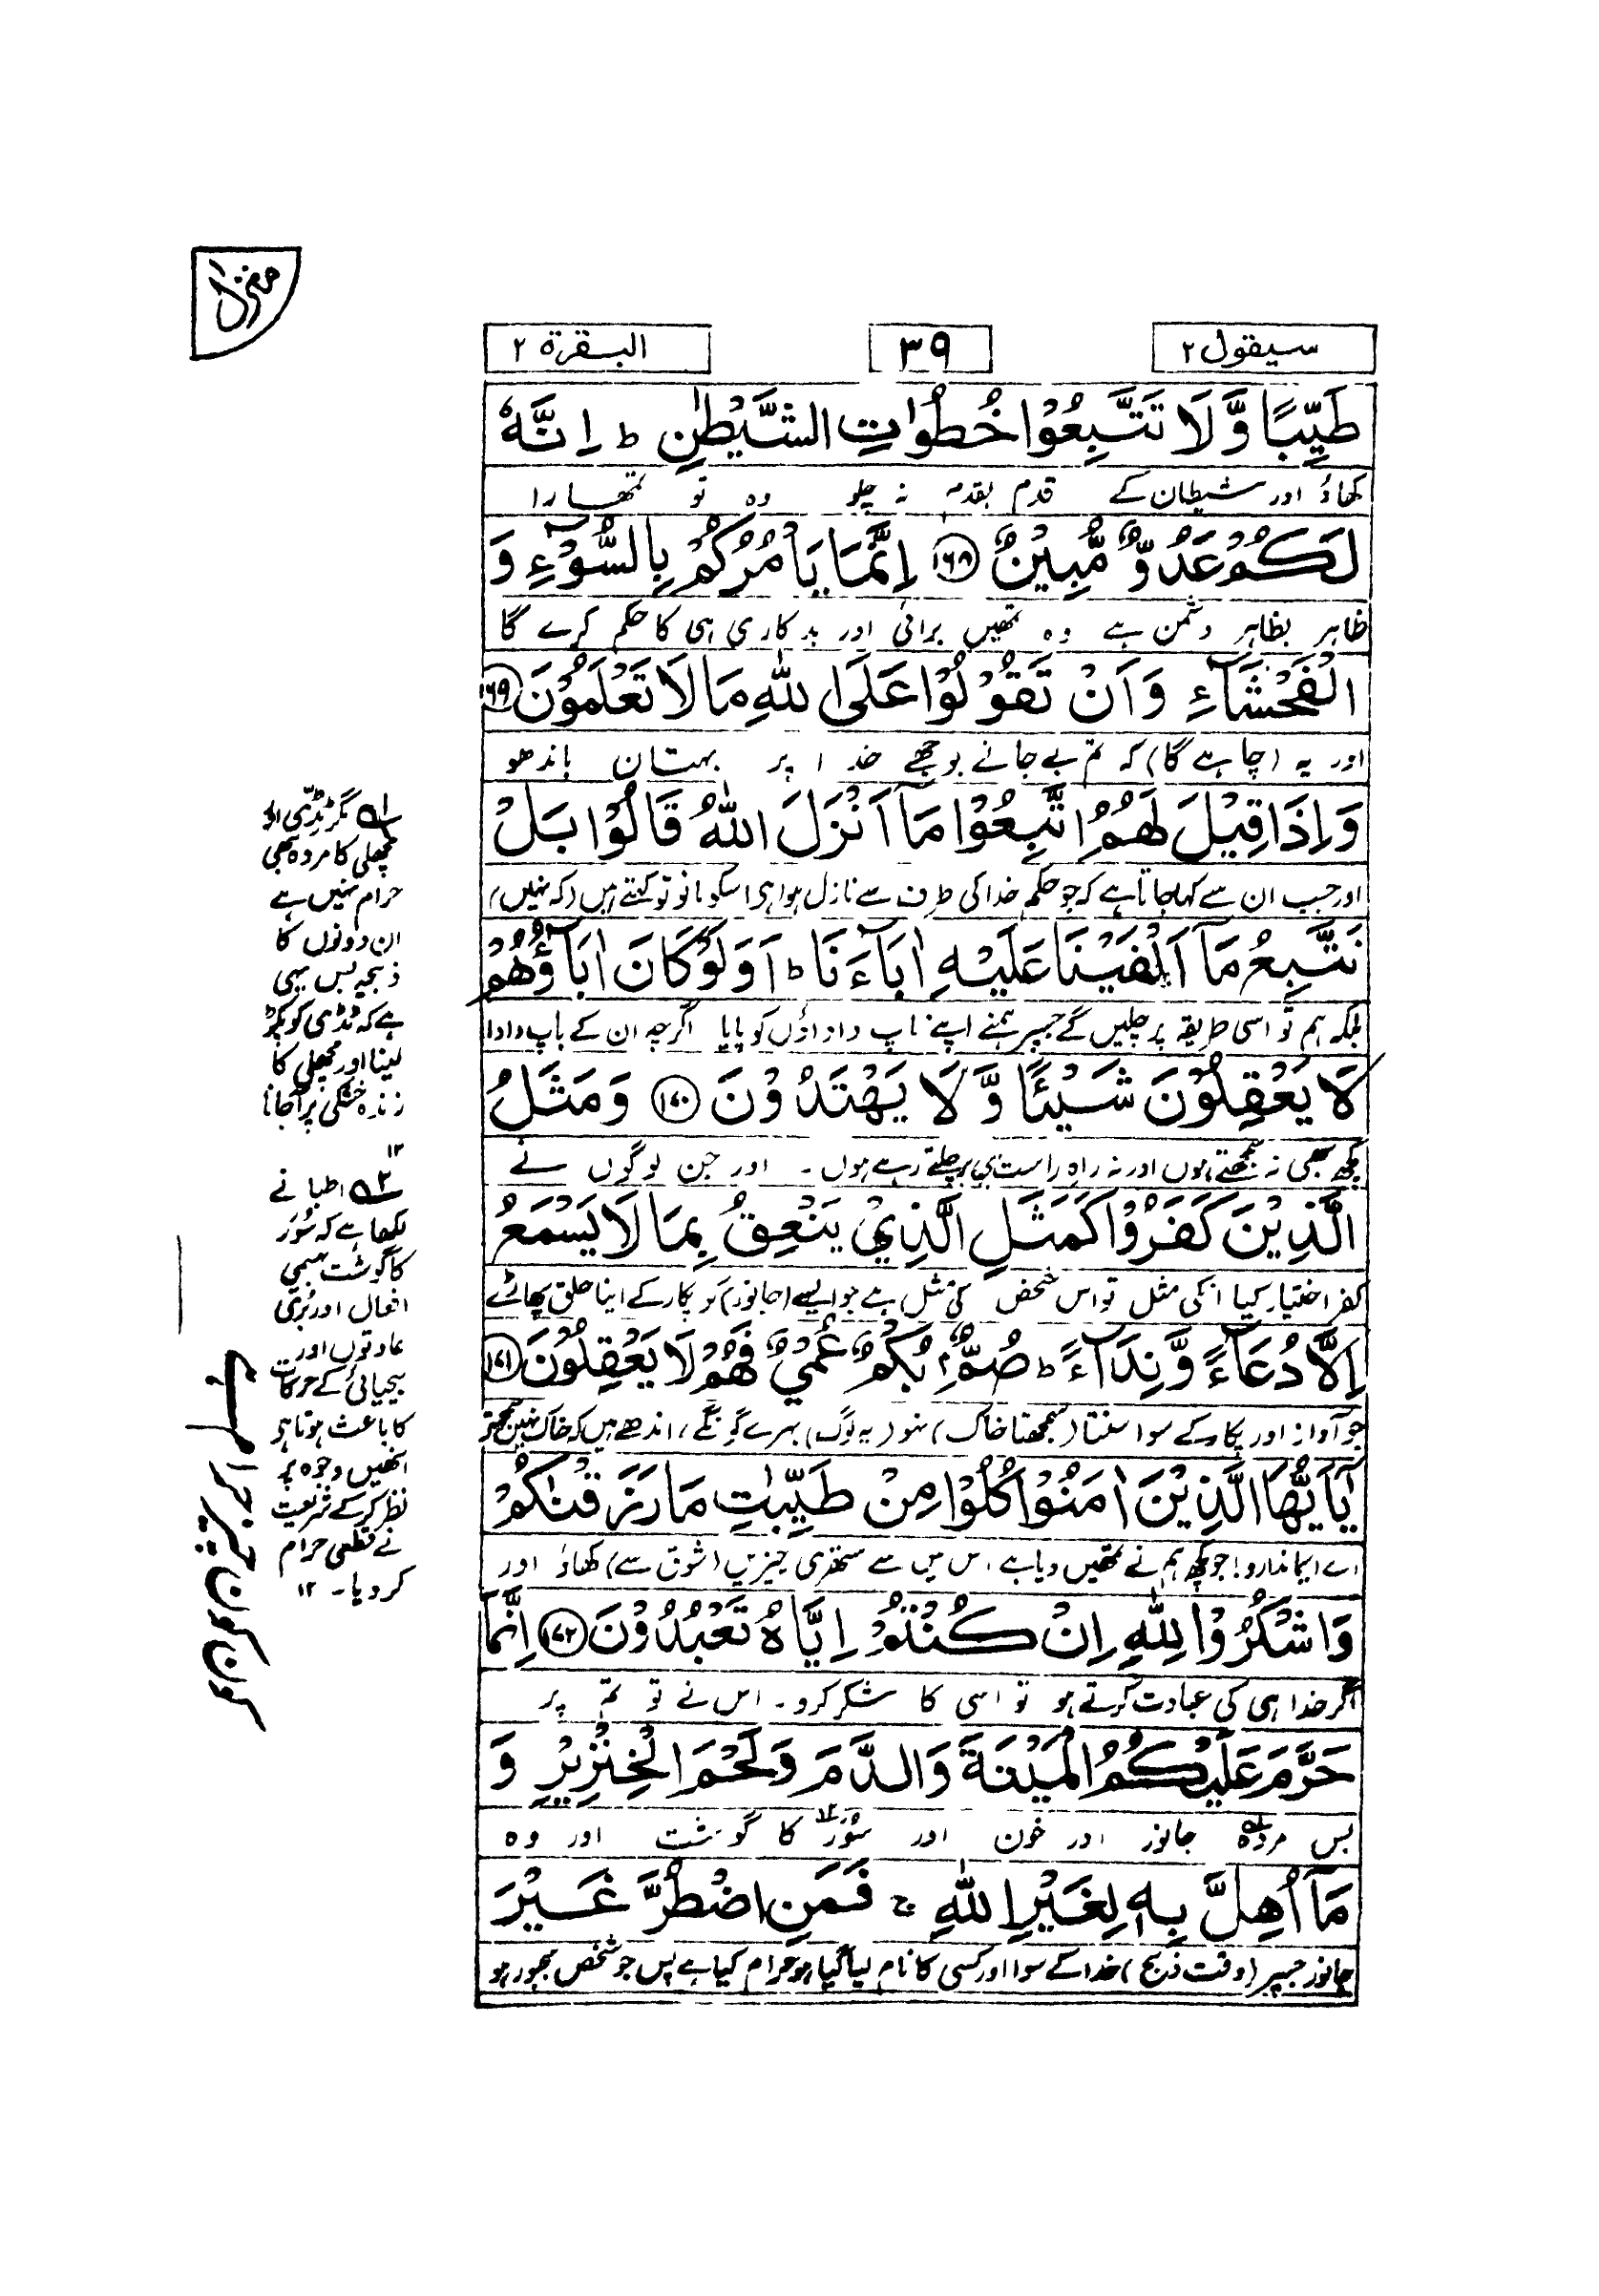 منزل ۱
سیقول ۲
۳۹
البقرة ۲
طَیِّبًا وَّ لَا تَتَّبِعُوْا خُطُوٰتِ الشَّیْطٰنِ ؕ اِنَّهٗ
کھاؤ اور شیطان کے قدم بقدم نہ چلو وہ تو تمھارا
لَكُمْ عَدُوٌّ مُّبِیْنٌ ۝۱۶۸ اِنَّمَا یَاْمُرُكُمْ بِالسُّوْٓءِ وَ
ظاہر بظاہر دشمن ہے وہ تمھیں برائی اور بدکاری ہی کا حکم کرے گا
الْفَحْشَآءِ وَ اَنْ تَقُوْلُوْا عَلَی اللّٰهِ مَا لَا تَعْلَمُوْنَ ۝۱۶۹
اور یہ (چاہے گا) کہ تم بے جانے بوجھے خدا پر بہتان باندھو
وَ اِذَا قِیْلَ لَهُمُ اتَّبِعُوْا مَاۤ اَنْزَلَ اللّٰهُ قَالُوْا بَلْ
اور جب ان سے کہا جاتا ہے کہ جو حکم خدا کی طرف سے نازل ہوا ہی اسکو مانو تو کہتے ہیں (کہ نہیں)
نَتَّبِعُ مَاۤ اَلْفَیْنَا عَلَیْهِ اٰبَآءَنَا ؕ اَوَ لَوْ كَانَ اٰبَآؤُهُمْ
بلکہ ہم تو اسی طریقہ پر چلیں گے جسپر ہمنے اپنے باپ داداؤں کو پایا اگرچہ ان کے باپ دادا
لَا یَعْقِلُوْنَ شَیْـًٔا وَّ لَا یَهْتَدُوْنَ ۝۱۷۰ وَ مَثَلُ
کچھ بھی نہ سمجھتے ہوں اور نہ راہ راست ہی پر چلتے رہے ہوں ۔ اور جن لوگوں نے
الَّذِیْنَ كَفَرُوْا كَمَثَلِ الَّذِیْ یَنْعِقُ بِمَا لَا یَسْمَعُ
کفر اختیار کیا انکی مثل تو اس شخص کی مثل ہے جو ایسے (جانور) کو پکار کے اپنا حلق پھاڑے
اِلَّا دُعَآءً وَّ نِدَآءً ؕ صُمٌّۢ بُكْمٌ عُمْیٌ فَهُمْ لَا یَعْقِلُوْنَ ۝۱۷۱
جو آواز اور پکار کے سوا سنتا (سمجھتا خاک) نہو (یہ لوگ) بہرے گونگے، اندھے ہیں کہ خاک نہیں سمجھتے
یٰۤاَیُّهَا الَّذِیْنَ اٰمَنُوْا كُلُوْا مِنْ طَیِّبٰتِ مَا رَزَقْنٰكُمْ
اے ایماندارو! جو کچھ ہم نے تمھیں دیا ہے اس میں سے ستھری چیزیں (شوق سے) کھاؤ اور
وَ اشْكُرُوْا لِلّٰهِ اِنْ كُنْتُمْ اِیَّاهُ تَعْبُدُوْنَ ۝۱۷۲ اِنَّمَا
اگر خدا ہی کی عبادت کرتے ہو تو اسی کا شکر کرو ۔ اس نے تو تم پر
حَرَّمَ عَلَیْكُمُ الْمَیْتَةَ وَ الدَّمَ وَ لَحْمَ الْخِنْزِیْرِ وَ
بس مردہ۱ جانور اور خون اور سور۲ کا گوشت اور وہ
مَاۤ اُهِلَّ بِهٖ لِغَیْرِ اللّٰهِ ۚ فَمَنِ اضْطُرَّ غَیْرَ
جانور جسپر (وقت ذبح) خدا کے سوا اور کسی کا نام لیا گیا ہو حرام کیا ہے پس جو شخص مجبور ہو
۱ مگر ٹڈی اور
مچھلی کا مردہ بھی
حرام نہیں ہے
ان دونوں کا
ذبیحہ بس یہی
ہے کہ ٹڈی کو پکڑ
لینا اور مچھلی کا
زندہ خشکی پر آجانا
۱۲
۲ اطبا نے
لکھا ہے کہ سُور
کا گوشت سمی
افعال اور بُری
عادتوں اور
بیحیائی کے حرکات
کا باعث ہوتا ہی
انھیں وجوہ پر
نظر کر کے شریعت
نے قطعی حرام
کر دیا ۔ ۱۲
کون کون چیز حرام ہے